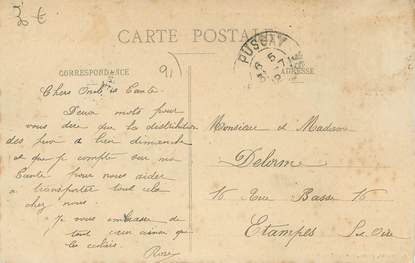 CARTE POSTALE
PUSSAY
CORRESPONDANCE
ADRESSE
91
Chers Oncle et Tante
Deux mots pour
vous dire que la distribution
des prix a lieu dimanche
et que je compte sur ma
Tante pour nous aider
a transporter tout cela
chez nous.
Je vous embrasse de
tout cœur ainsi que
les
Monsieur et Madame
Delorme
16 Rue Basse 16
Etampes S et Oise